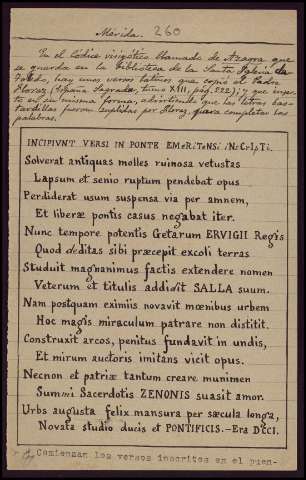 Mérida. 260
En el Códice visigótico llamado de Azagra que
se guarda en la biblioteca de la Santa Iglesia de
Toledo, hay unos versos latinos que copió el Padre
Florez (España Sagrada, tomo XIII, pág. 222); y que inser-
to en su misma forma, advirtiendo que las letras bas-
tardillas fueron suplidas por Florez para completar las
palabras.
INCIPIVNT VERSI IN PONTE EMeRiTeNSi INcrIpTi.
Solverat antiquas molles ruinosa vetustas
Lapsum et senio ruptum pendebat opus
Perdiderat usum suspensa via per amnem,
Et liberæ pontis casus negabat iter.
Nunc tempore potentis Getarum ERVIGII Regis
Quod deditas sibi præcepit excoli terras
Studuit magnanimus factis extendere nomen
Veterum et titulis addidit SALLA suum.
Nam postquam eximiis novavit mœnibus urbem
Hoc magis miraculum patrare non distitit.
Construxit arcos, penitus fundavit in undis,
Et mirum auctoris imitans vicit opus.
Necnon et patriæ tantum creare munimen
Summi Sacerdotis ZENONIS suasit amor.
Urbs augusta felix mansura per sæcula longa,
Novata studio ducis et PONTIFICIS.-Era DCCI.
Comienzan los versos inscritos en el puen-